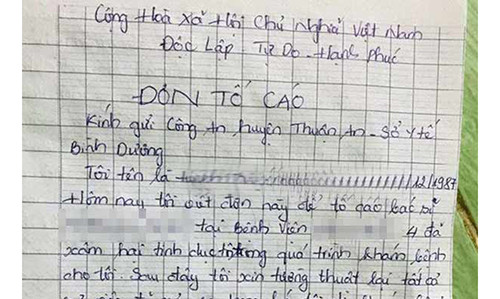 Cộng Hoà Xã Hội Chủ Nghĩa Việt Nam
Độc Lập - Tự Do - Hạnh Phúc
ĐƠN TỐ CÁO
Kính gửi Công An huyện Thuận An - Sở Y tế
Bình Dương
Tôi tên là 12/1987
Hôm nay tôi viết đơn này để tố cáo bác sĩ
tại Bệnh Viện 4 đã
xâm hại tình dục tôi trong quá trình khám bệnh
cho tôi. Sau đây tôi xin tường thuật lại tất cả